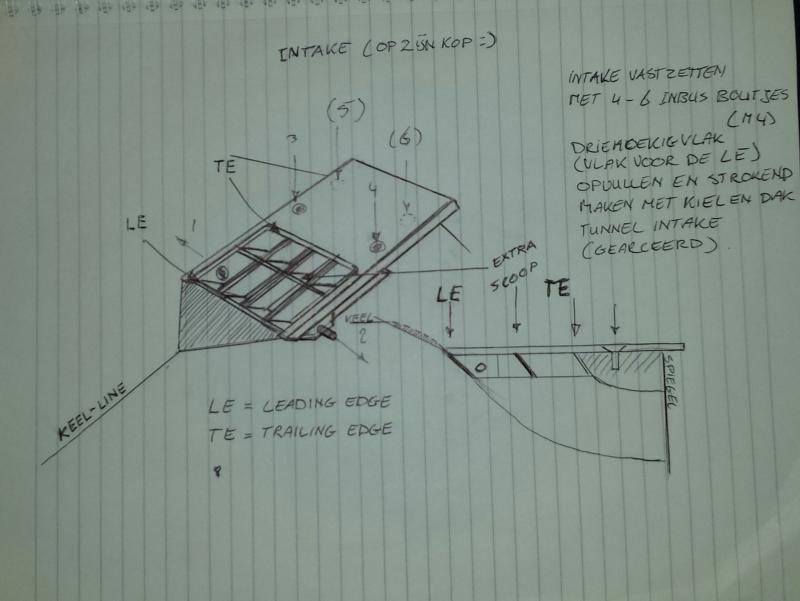 INTAKE (OP ZIJN KOP =)
INTAKE VASTZETTEN
MET 4-6 INBUS BOUTJES
(M4)
DRIEHOEKIG VLAK
(VLAK VOOR DE LE)
OPVULLEN EN STROKEND
MAKEN MET KIEL EN DAK
TUNNEL INTAKE
(GEARCEERD).
(5)
3
(6)
TE
4
LE
1
EXTRA
SCOOP
LE
TE
KEEL
2
SPIEGEL
KEEL-LINE
LE = LEADING EDGE
TE = TRAILING EDGE